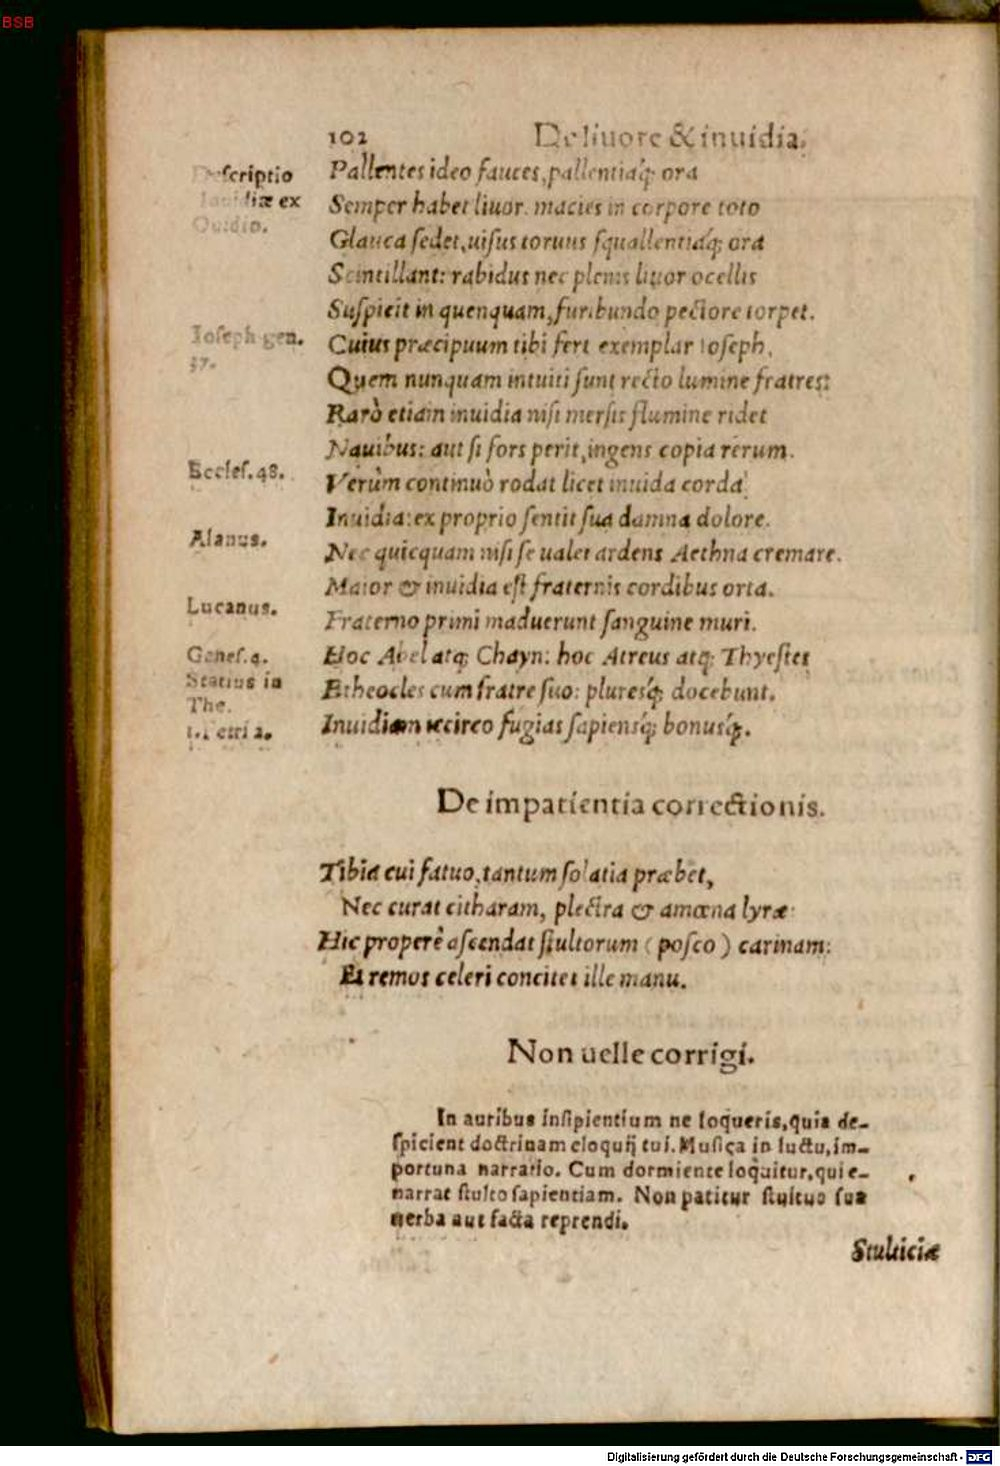 BSB
102 De liuore & inuidia.
Descriptio
Inuidiæ ex
Ouidio.
Pallentes ideo fauces, pallentiaq́; ora
Semper habet liuor. macies in corpore toto
Glauca sedet, uisus toruus squallentiaq́; ora
Scintillant: rabidus nec plenis liuor ocellis
Suspicit in quenquam, furibundo pectore torpet.
Ioseph gen.
37.
Cuius præcipuum tibi fert exemplar Ioseph,
Quem nunquam intuiti sunt recto lumine fratres:
Rarò etiam inuidia nisi mersis flumine ridet
Nauibus: aut si fors perit, ingens copia rerum.
Eccles. 48.
Verùm continuò rodat licet inuida corda
Inuidia: ex proprio sentit sua damna dolore.
Alanus.
Nec quicquam nisi se ualet ardens Aethna cremare.
Maior & inuidia est fraternis cordibus orta.
Lucanus.
Fraterno primi maduerunt sanguine muri.
Genes. 4.
Hoc Abel atq; Chayn: hoc Atreus atq; Thyestes
Statius in
The.
Etheocles cum fratre suo: pluresq́; docebunt.
1. Petri 2.
Inuidiam iccirco fugias sapiensq́; bonusq́;.
De impatientia correctionis.
Tibia cui fatuo, tantum solatia præbet,
Nec curat citharam, plectra & amœna lyræ:
Hic properè ascendat stultorum (posco) carinam:
Et remos celeri concitet ille manu.
Non uelle corrigi.
In auribus insipientium ne loqueris, quia de-
spicient doctrinam eloquij tui. Musica in luctu, im-
portuna narratio. Cum dormiente loquitur, qui e-
narrat stulto sapientiam. Non patitur stultus sua
uerba aut facta reprendi.
Stulticiæ
Digitalisierung gefördert durch die Deutsche Forschungsgemeinschaft - DFG